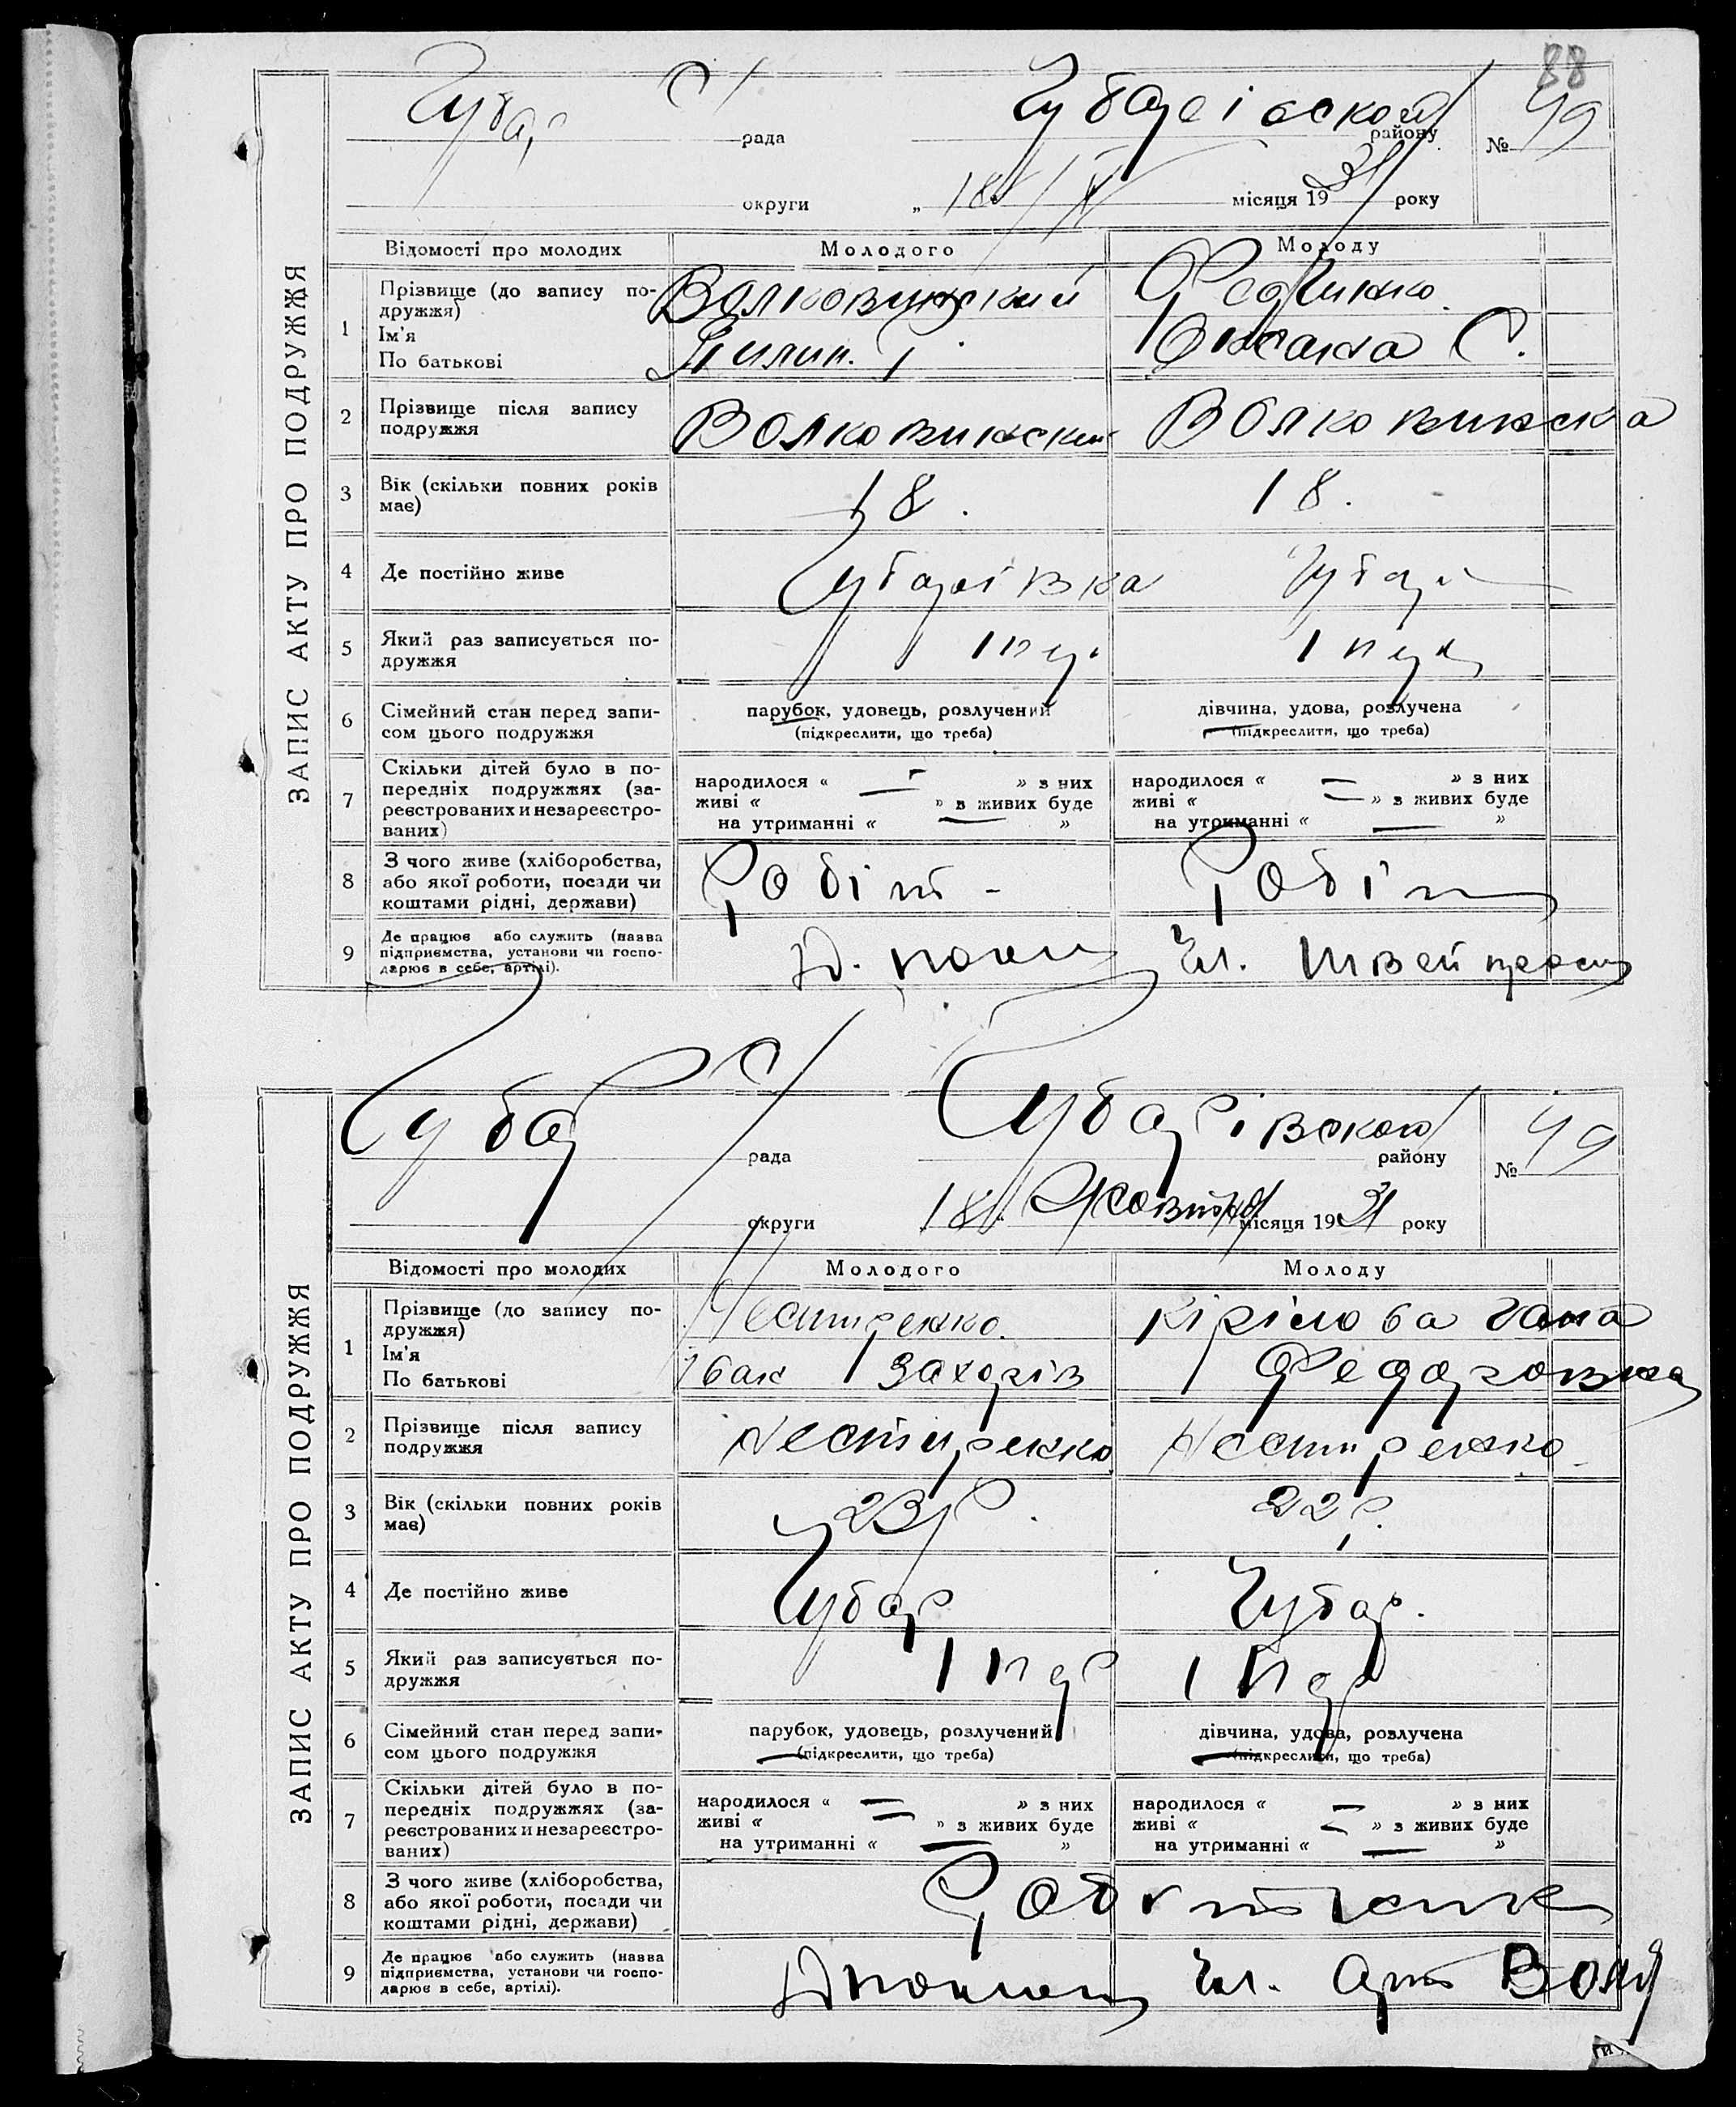 88
Чубар с/
рада
Чубарівской
району
№ 49
округи
„ 18 / X місяця 1931 року
ЗАПИС АКТУ ПРО ПОДРУЖЖЯ
Відомості про молодих Молодого Молоду
1 Прізвище (до запису по-
дружжя)
Ім'я
По батькові
Волковинский
Пилип. Г
Федченко
Оксана С.
2 Прізвище після запису
подружжя
Волковинский Волковинска
3 Вік (скільки повних років
має)
18. 18.
4 Де постійно живе Чубарівка Чубар
5 Який раз записується по-
дружжя
1 пер. 1 пер
6 Сімейний стан перед запи-
сом цього подружжя
парубок, удовець, розлучений
(підкреслити, що треба)
дівчина, удова, розлучена
(підкреслити, що треба)
7 Скільки дітей було в по-
передніх подружжях (за-
реєстрованих и незареєстро-
ваних)
народилося « — » з них
живі « » з живих буде
на утриманні « — »
народилося « — » з них
живі « — » з живих буде
на утриманні « — »
8 З чого живе (хліборобства,
або якої роботи, посади чи
коштами рідні, держави)
Робіт - Робіт
9 Де працює або служить (назва
підприємства, установи чи госпо-
дарює в себе, артілі).
Чл. Швейпром
Чубар с/
рада
Чубарівской
району
№ 49
округи
18 Жовтня місяця 1931 року
ЗАПИС АКТУ ПРО ПОДРУЖЖЯ
Відомості про молодих Молодого Молоду
1 Прізвище (до запису по-
дружжя)
Ім'я
По батькові
Нестиренко
Іван Захарів
Кірілова Гана
Федоровна
2 Прізвище після запису
подружжя
Нестиренко Нестиренко
3 Вік (скільки повних років
має)
23 р. 22 р.
4 Де постійно живе Чубар Чубар.
5 Який раз записується по-
дружжя
1 пер 1 пер
6 Сімейний стан перед запи-
сом цього подружжя
парубок, удовець, розлучений
(підкреслити, що треба)
дівчина, удова, розлучена
(підкреслити, що треба)
7 Скільки дітей було в по-
передніх подружжях (за-
реєстрованих и незареєстро-
ваних)
народилося « — » з них
живі « — » з живих буде
на утриманні « — »
народилося « — » з них
живі « — » з живих буде
на утриманні « — »
8 З чого живе (хліборобства,
або якої роботи, посади чи
коштами рідні, держави)
9 Де працює або служить (назва
підприємства, установи чи госпо-
дарює в себе, артілі).
Чл. Арт Воля